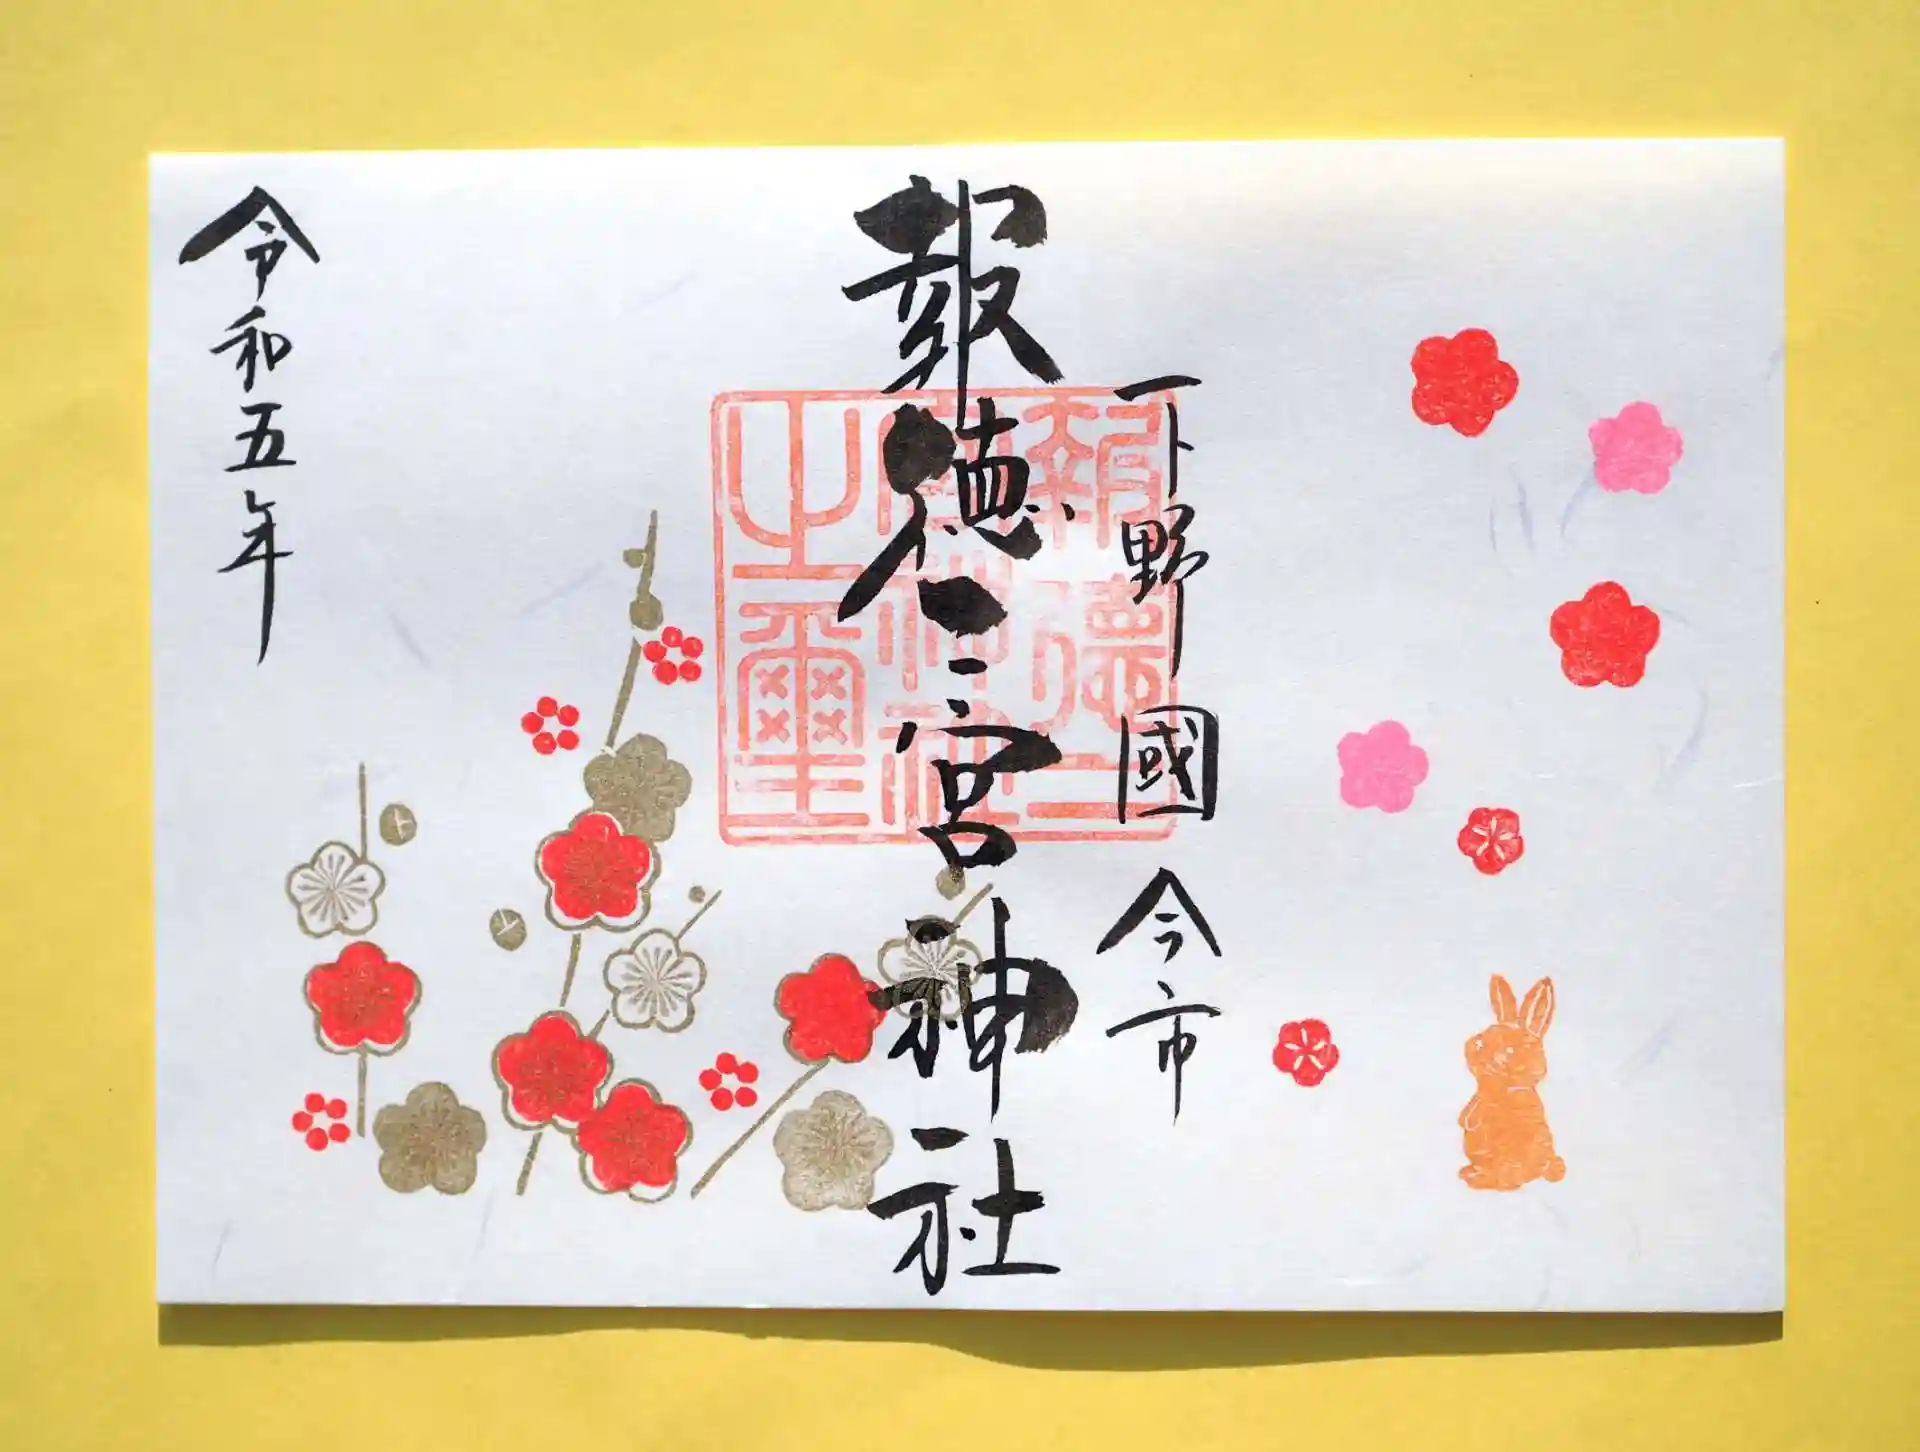 下野國今市
報徳二宮神社
報徳二宮神社之璽
令和五年